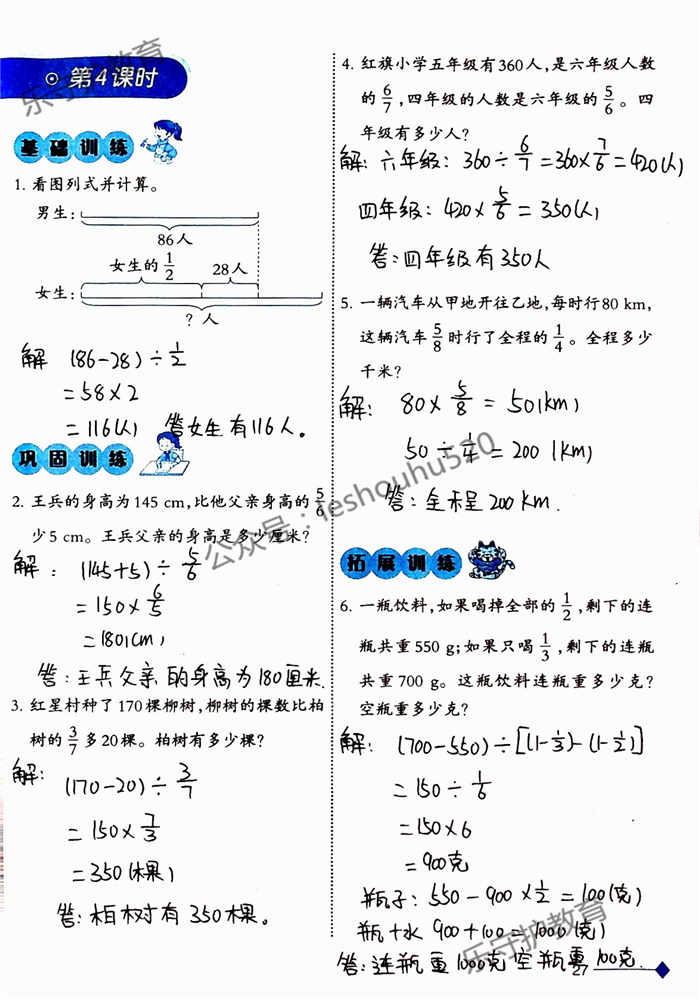 第4课时
基础训练
1. 看图列式并计算。
男生:
86人
女生的1/2 28人
女生:
? 人
解 (86-28)÷1/2
=58×2
=116(人) 答女生有116人。
巩固训练
2. 王兵的身高为145 cm,比他父亲身高的5/6
少5 cm。王兵父亲的身高是多少厘米?
解: (145+5)÷5/6
=150×6/5
=180(cm)
答:王兵父亲的身高为180厘米.
3. 红星村种了170棵柳树,柳树的棵数比柏
树的3/7多20棵。柏树有多少棵?
解: (170-20)÷3/7
=150×7/3
=350(棵)
答:柏树有350棵。
4. 红旗小学五年级有360人,是六年级人数
的6/7,四年级的人数是六年级的5/6。四
年级有多少人?
解:六年级:360÷6/7=360×7/6=420(人)
四年级:420×5/6=350(人)
答:四年级有350人
5. 一辆汽车从甲地开往乙地,每时行80 km,
这辆汽车5/8时行了全程的1/4。全程多少
千米?
解: 80×5/8=50(km)
50÷1/4=200(km)
答:全程200 km.
拓展训练
6. 一瓶饮料,如果喝掉全部的1/2,剩下的连
瓶共重550 g;如果只喝1/3,剩下的连瓶
共重700 g。这瓶饮料连瓶重多少克?
空瓶重多少克?
解: (700-550)÷[(1-1/3)-(1-1/2)]
=150÷1/6
=150×6
=900克
瓶子:550-900×1/2=100(克)
瓶+水 900+100=1000(克)
答:连瓶重1000克 空瓶重100克.
27
乐守护教育
公众号:leshouhu520
乐守护教育